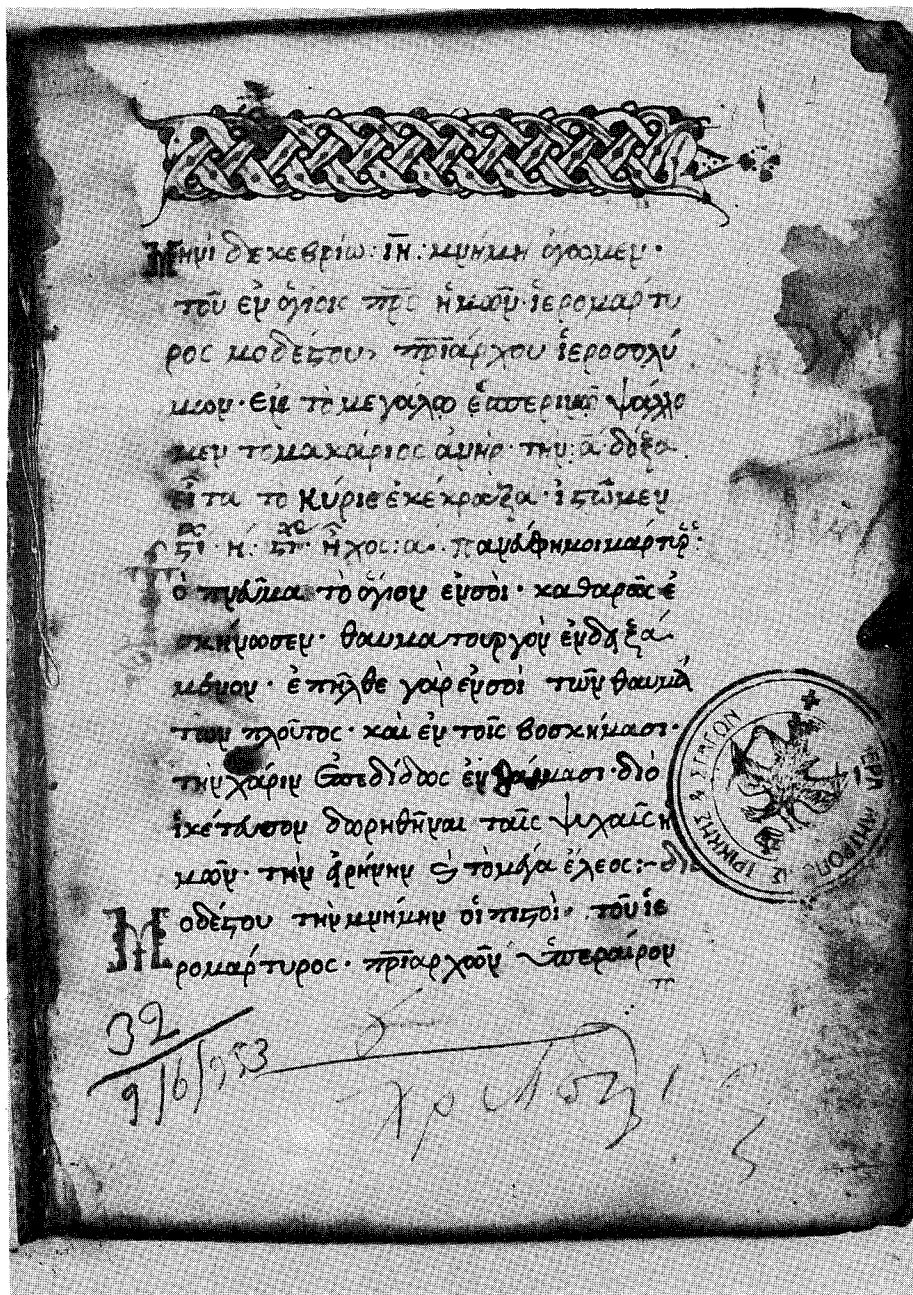 Μηνὶ δεκεβρίω· ιη: μνήμη ἄγομεν·
τοῦ ἐν ἁγίοις πρς ἡμῶν ἱερομάρτυ
ρος μοδέστου, πριάρχου ἱεροσολύ
μων· Εν τὸ μεγάλω ἑσπερινῶ ψάλλο
μεν το μακάριος ἀνήρ· τὴν ά δόξα
εἶτα το Κύριε ἐκέκραξα· ἱστῶμεν
στί· η· στχ· ἦχος: α· πανεύφημοι μάρτυρ:
Το πνεῦμα τὸ ἅγιον ἐν σοὶ· καθαρῶς ἐ
σκήνωσεν· θαυματουργὸν ἐνδειξά
μενον· ἐπῆλθε γὰρ ἐν σοὶ τῶν θαυμά
των πλοῦτος· καὶ ἐν τοῖς βοσκήμασι·
τὴν χάριν ἐπεδίδως ἐν θαύμασι· διὸ
ἱκέτευσον δωρηθῆναι ταῖς ψυχαῖς ἡ
μῶν· τὴν εἰρήνην ϗ τὸ μέγα ἔλεος:-
Μοδέστου τὴν μνήμην οἱ πιστοὶ· τοῦ ἱε
ρομάρτυρος· πριαρχῶν ὑπεραίρον
32
9/6/953
ΙΕΡΑ ΜΗΤΡΟΠΟΛΙΣ ΤΡΙΚΚΗΣ & ΣΤΑΓΩΝ